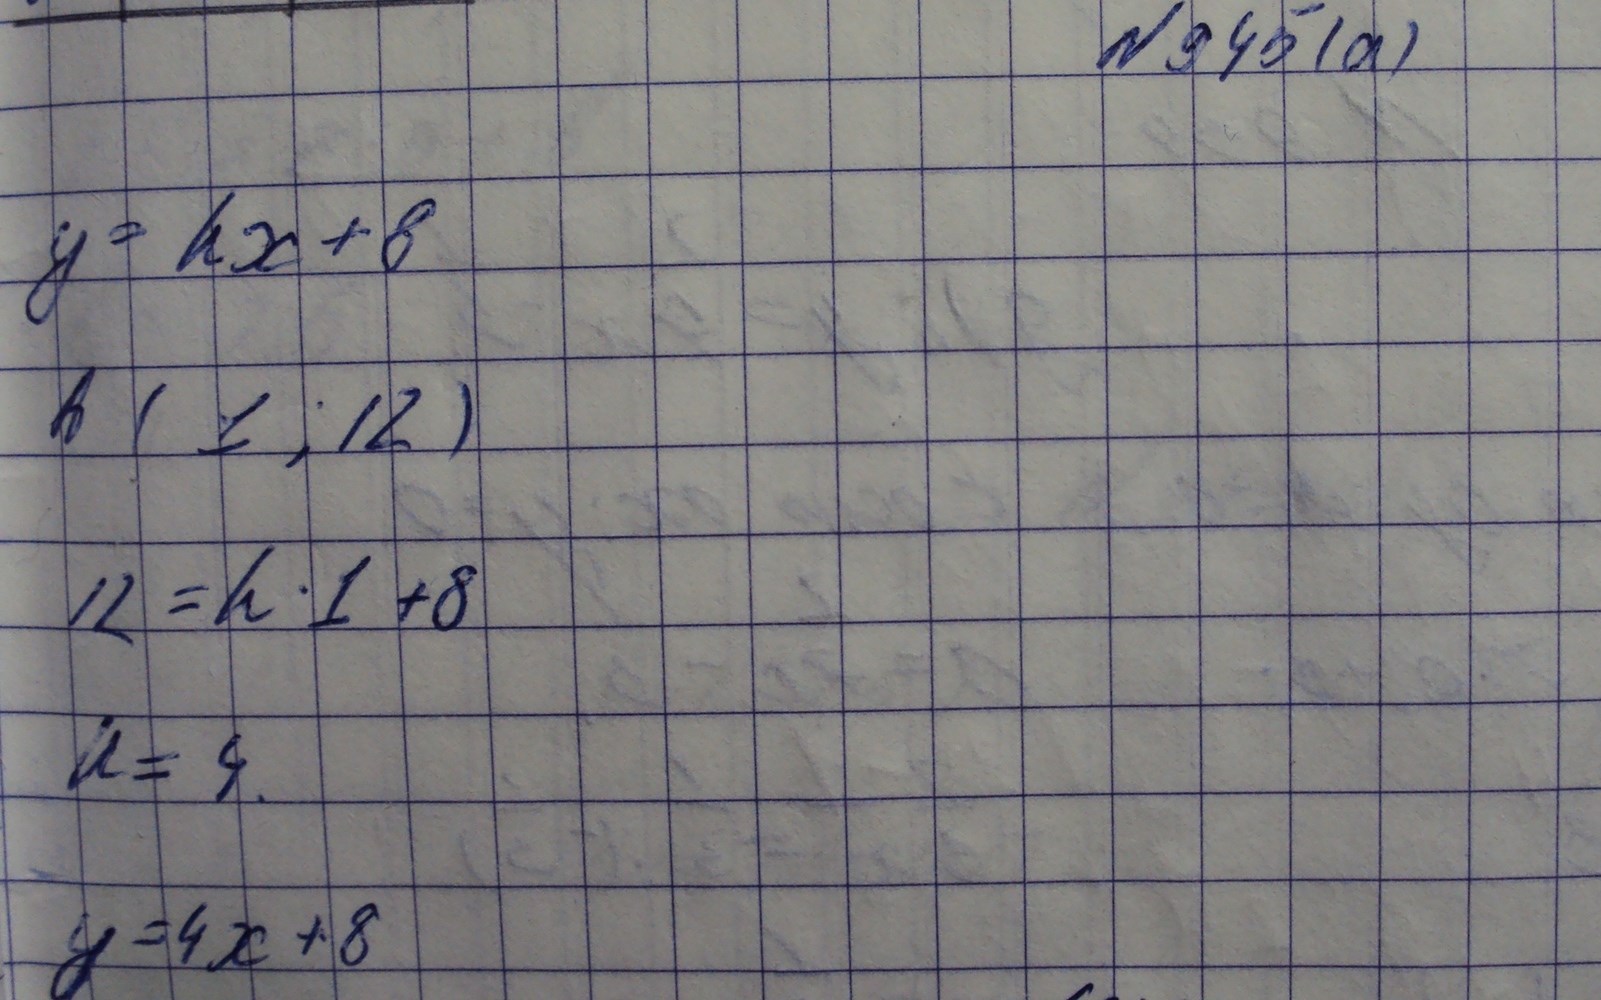 №345(а)
y = kx + 8
A ( 1 ; 12 )
12 = k · 1 + 8
k = 4.
y = 4x + 8